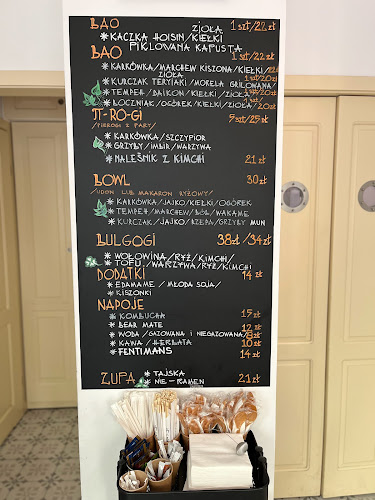 BAO ZIOŁA 1 szt/22 zł
* KACZKA HOISIN/KIEŁKI
PIKLOWANA KAPUSTA
BAO 1 szt/22 zł
* KARKÓWKA/MARCHEW KISZONA/KIEŁKI/
ZIOŁA
* KURCZAK TERIYAKI/MORELA GRILOWANA/
* TEMPEH/DAIKON/KIEŁKI/ZIOŁA
* BOCZNIAK/OGÓREK/KIEŁKI/ZIOŁA/20
π-RO-GI 5 szt/25 zł
/PIEROGI Z PARY/
* KARKÓWKA/SZCZYPIOR
* GRZYBY/IMBIR/WARZYWA
* NALEŚNIK Z KIMCHI 21 zł
BOWL 30 zł
/UDON LUB MAKARON RYŻOWY/
* KARKÓWKA/JAJKO/KIEŁKI/OGÓREK
* TEMPEH/MARCHEW/BÓB/WAKAME
* KURCZAK/JAJKO/RZEPA/GRZYBY MUN
BULGOGI 38zł/34zł
* WOŁOWINA/RYŻ/KIMCHI/
* TOFU/WARZYWA/RYŻ/KIMCHI
DODATKI 14 zł
* EDAMAME/MŁODA SOJA/
* KISZONKI
NAPOJE
* KOMBUCHA 15 zł
* BEAR MATE 12 zł
* WODA/GAZOWANA I NIEGAZOWANA/
* KAWA/HERBATA 10 zł
* FENTIMANS 14 zł
ZUPA * TAJSKA 21 zł
* NIE-RAMEN